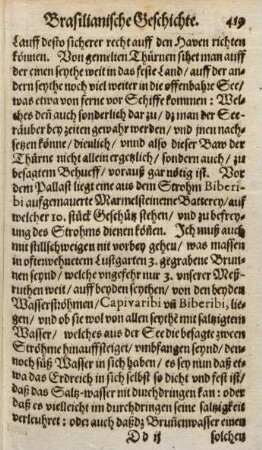 Brasilianische Geschichte. 419
Lauff desto sicherer recht auff den Haven richten
können. Von gemelten Thürnen sihet man auff
der einen seythe weit in das feste Land / auff der an-
dern seythe noch viel weiter in die offenbahre See /
was etwa von ferne vor Schiffe kommen: Wel-
ches deñ auch sonderlich dar zu / dz man der See-
räuber bey zeiten gewahr werden / und jnen nach-
setzen könne / dienlich / unnd also dieser Baw der
Thürne nicht allein ergetzlich / sondern auch / zu
besagtem Behueff / vorauß gar nötig ist. Vor
dem Pallast liegt eine aus dem Strohm Biberi-
bi auffgemauerte Marmelsteinerne Batterey / auf
welcher 10. stück Geschütz stehen / und zu befrey-
ung des Strohms dienen köñen. Ich muß auch
mit stillschweigen nit vorbey gehen / was massen
in offtwehnetem Lustgarten 3. gegrabene Brun-
nen seynd / welche vngefehr nur 3. unserer Meß-
ruthen weit / auff beyden seythen / von den beyden
Wasserströhmen / Capivaribi vñ Biberibi, lie-
gen / und ob sie wol von allen seythē mit saltzigtem
Wasser / welches aus der See die besagte zween
Ströhme hinauffsteiget / umbfangen seynd / den-
noch süß Wasser in sich haben / es sey nun daß et-
wa das Erdreich in sich selbst so dicht und fest ist /
daß das Saltz-wasser nit durchdringen kan: oder
daß es vielleicht im durchdringen seine saltzigkeit
verleuhret: oder auch daßdz Bruñenwasser einen
D d ij solchen